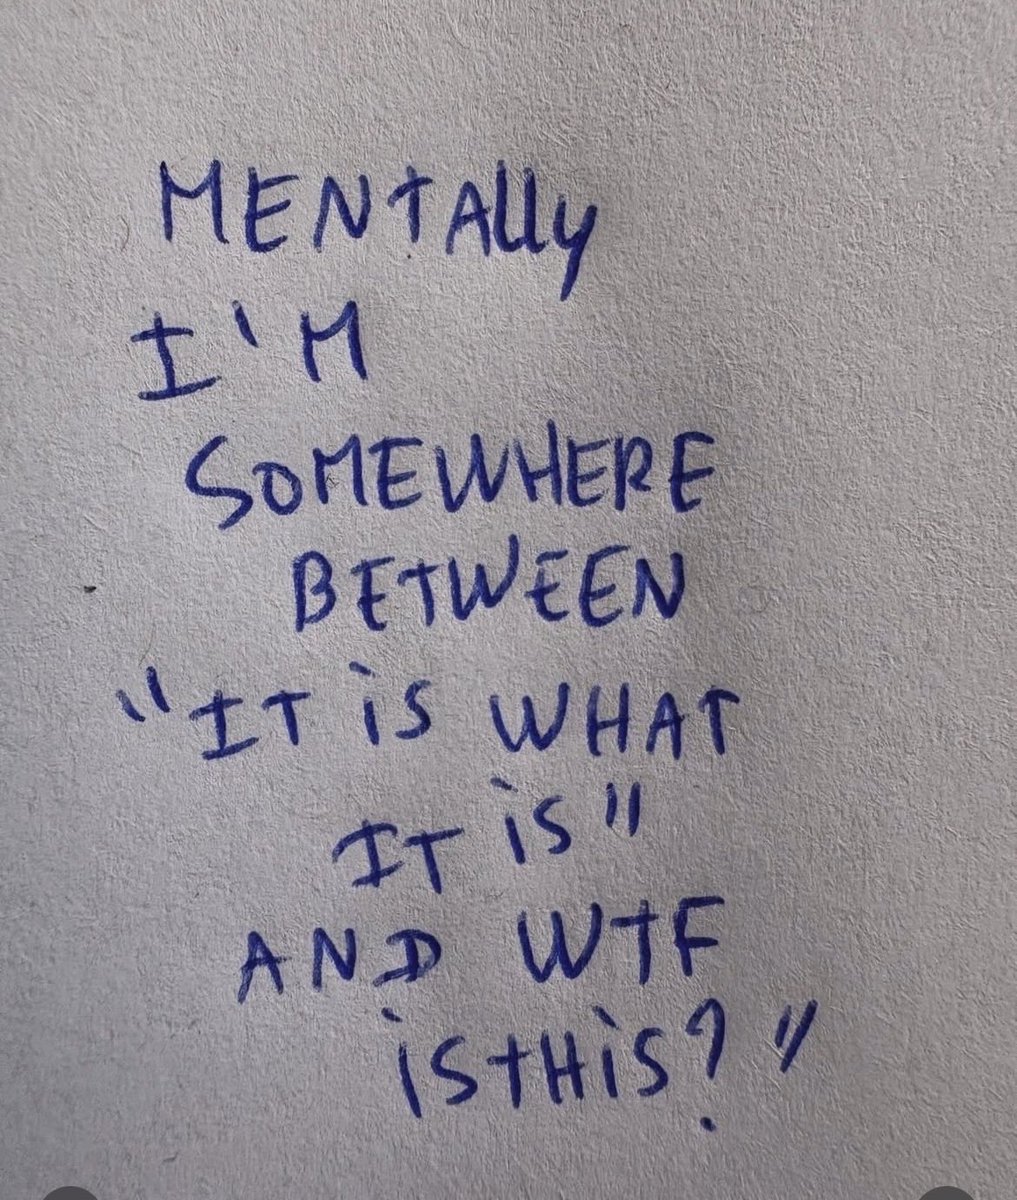 MENTAlly
I'M
SOMEWHERE
BETWEEN
"IT iS WHAT
IT iS"
AND WTF
iS THiS? "